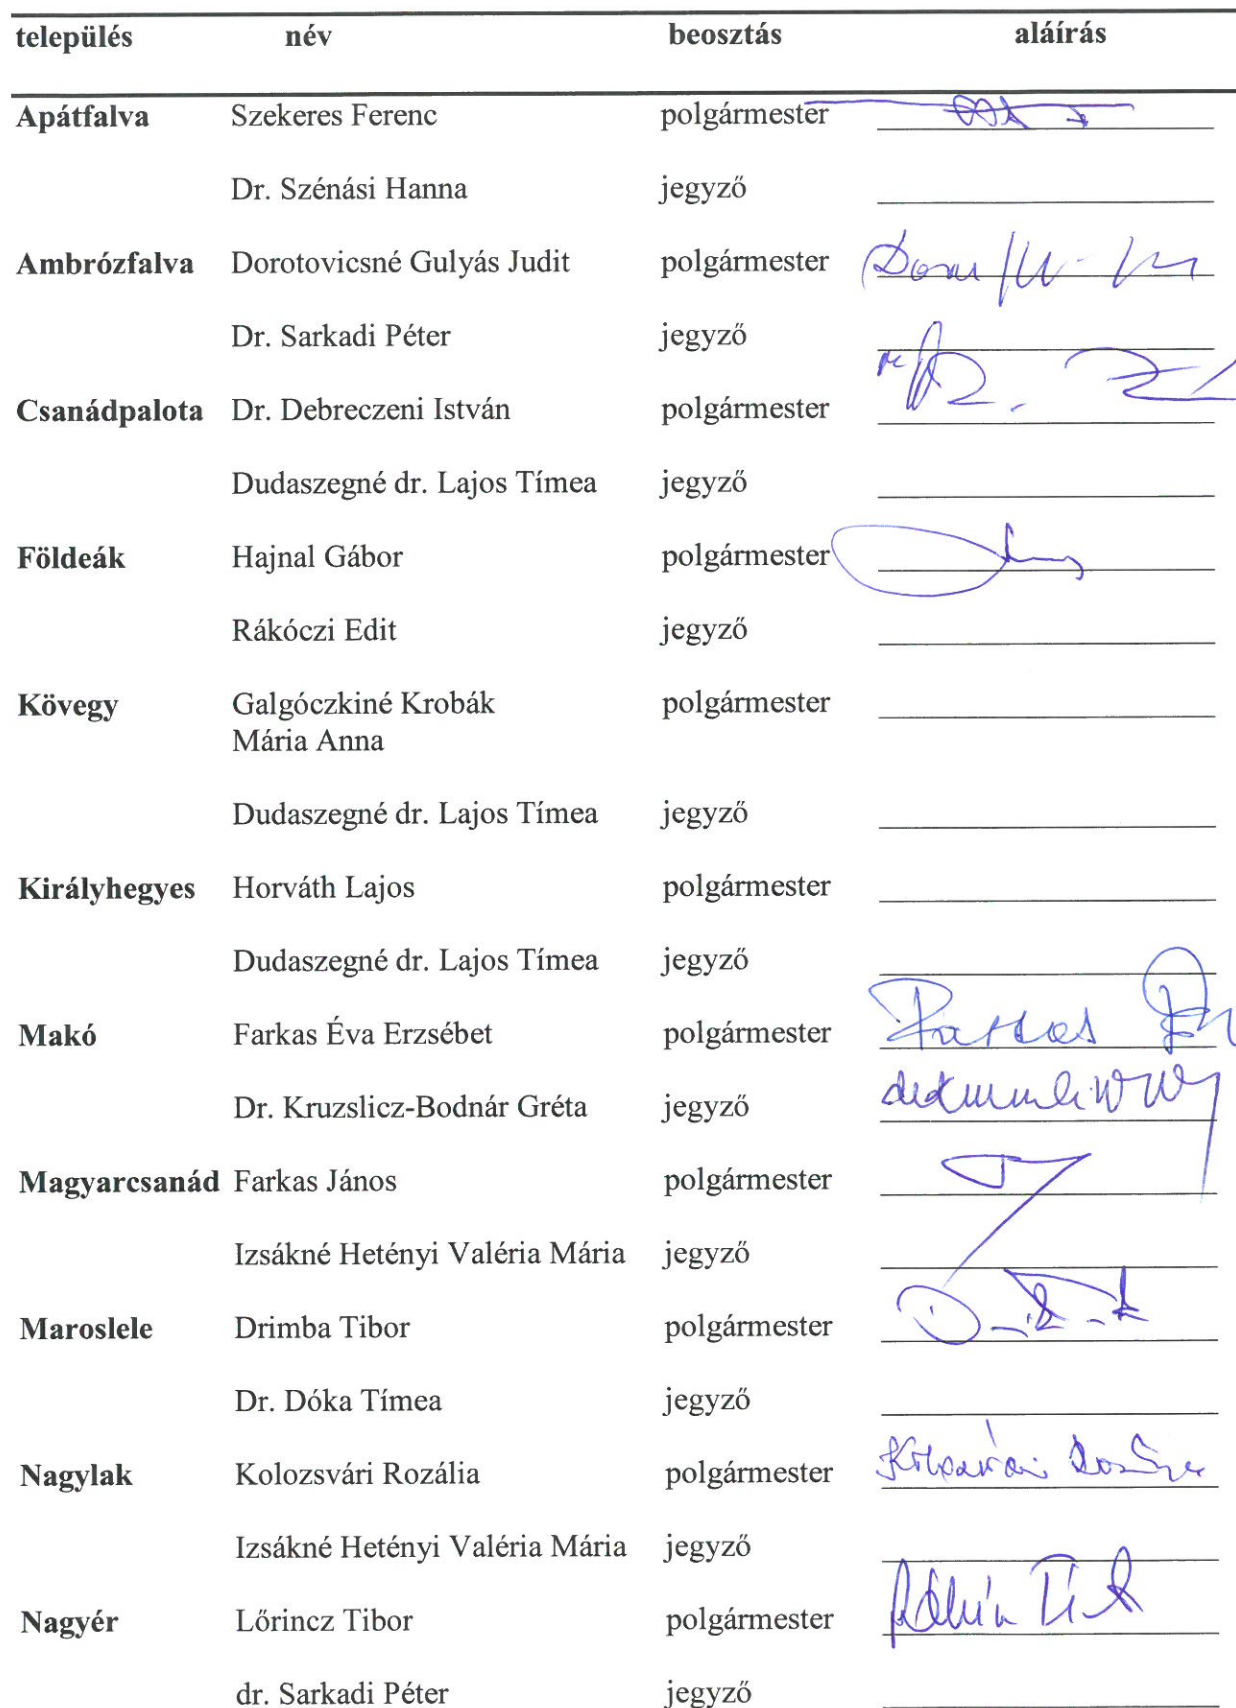 település név beosztás aláírás
Apátfalva Szekeres Ferenc polgármester
Dr. Szénási Hanna jegyző
Ambrózfalva Dorotovicsné Gulyás Judit polgármester
Dr. Sarkadi Péter jegyző
Csanádpalota Dr. Debreczeni István polgármester
Dudaszegné dr. Lajos Tímea jegyző
Földeák Hajnal Gábor polgármester
Rákóczi Edit jegyző
Kövegy Galgóczkiné Krobák polgármester
Mária Anna
Dudaszegné dr. Lajos Tímea jegyző
Királyhegyes Horváth Lajos polgármester
Dudaszegné dr. Lajos Tímea jegyző
Makó Farkas Éva Erzsébet polgármester Farkas
Dr. Kruzslicz-Bodnár Gréta jegyző
Magyarcsanád Farkas János polgármester
Izsákné Hetényi Valéria Mária jegyző
Maroslele Drimba Tibor polgármester
Dr. Dóka Tímea jegyző
Nagylak Kolozsvári Rozália polgármester
Izsákné Hetényi Valéria Mária jegyző
Nagyér Lőrincz Tibor polgármester
dr. Sarkadi Péter jegyző